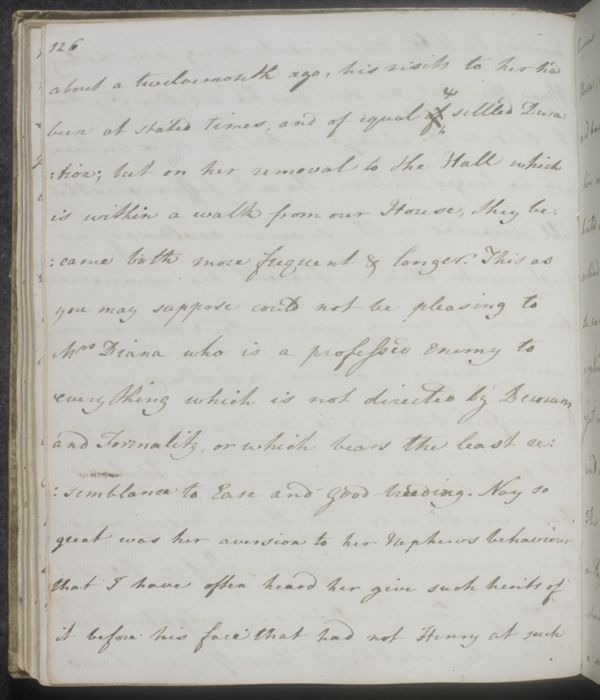 126
about a twelvemonth ago, his visits to her ha
been at stated times, and of equal & settled Dura:
:tion; but on her removal to the Hall which
is within a walk from our House, they be:
:came both more frequent & longer. This as
you may suppose could not be pleasing to
Mrs Diana who is a professed Enemy to
everything which is not directed by Decorum
and Formality, or which bears the least re:
:semblance to Ease and Good-breeding. Nay so
great was her aversion to her Nephews behaviour
that I have often heard her give such hints of
it before his face that had not Henry at such